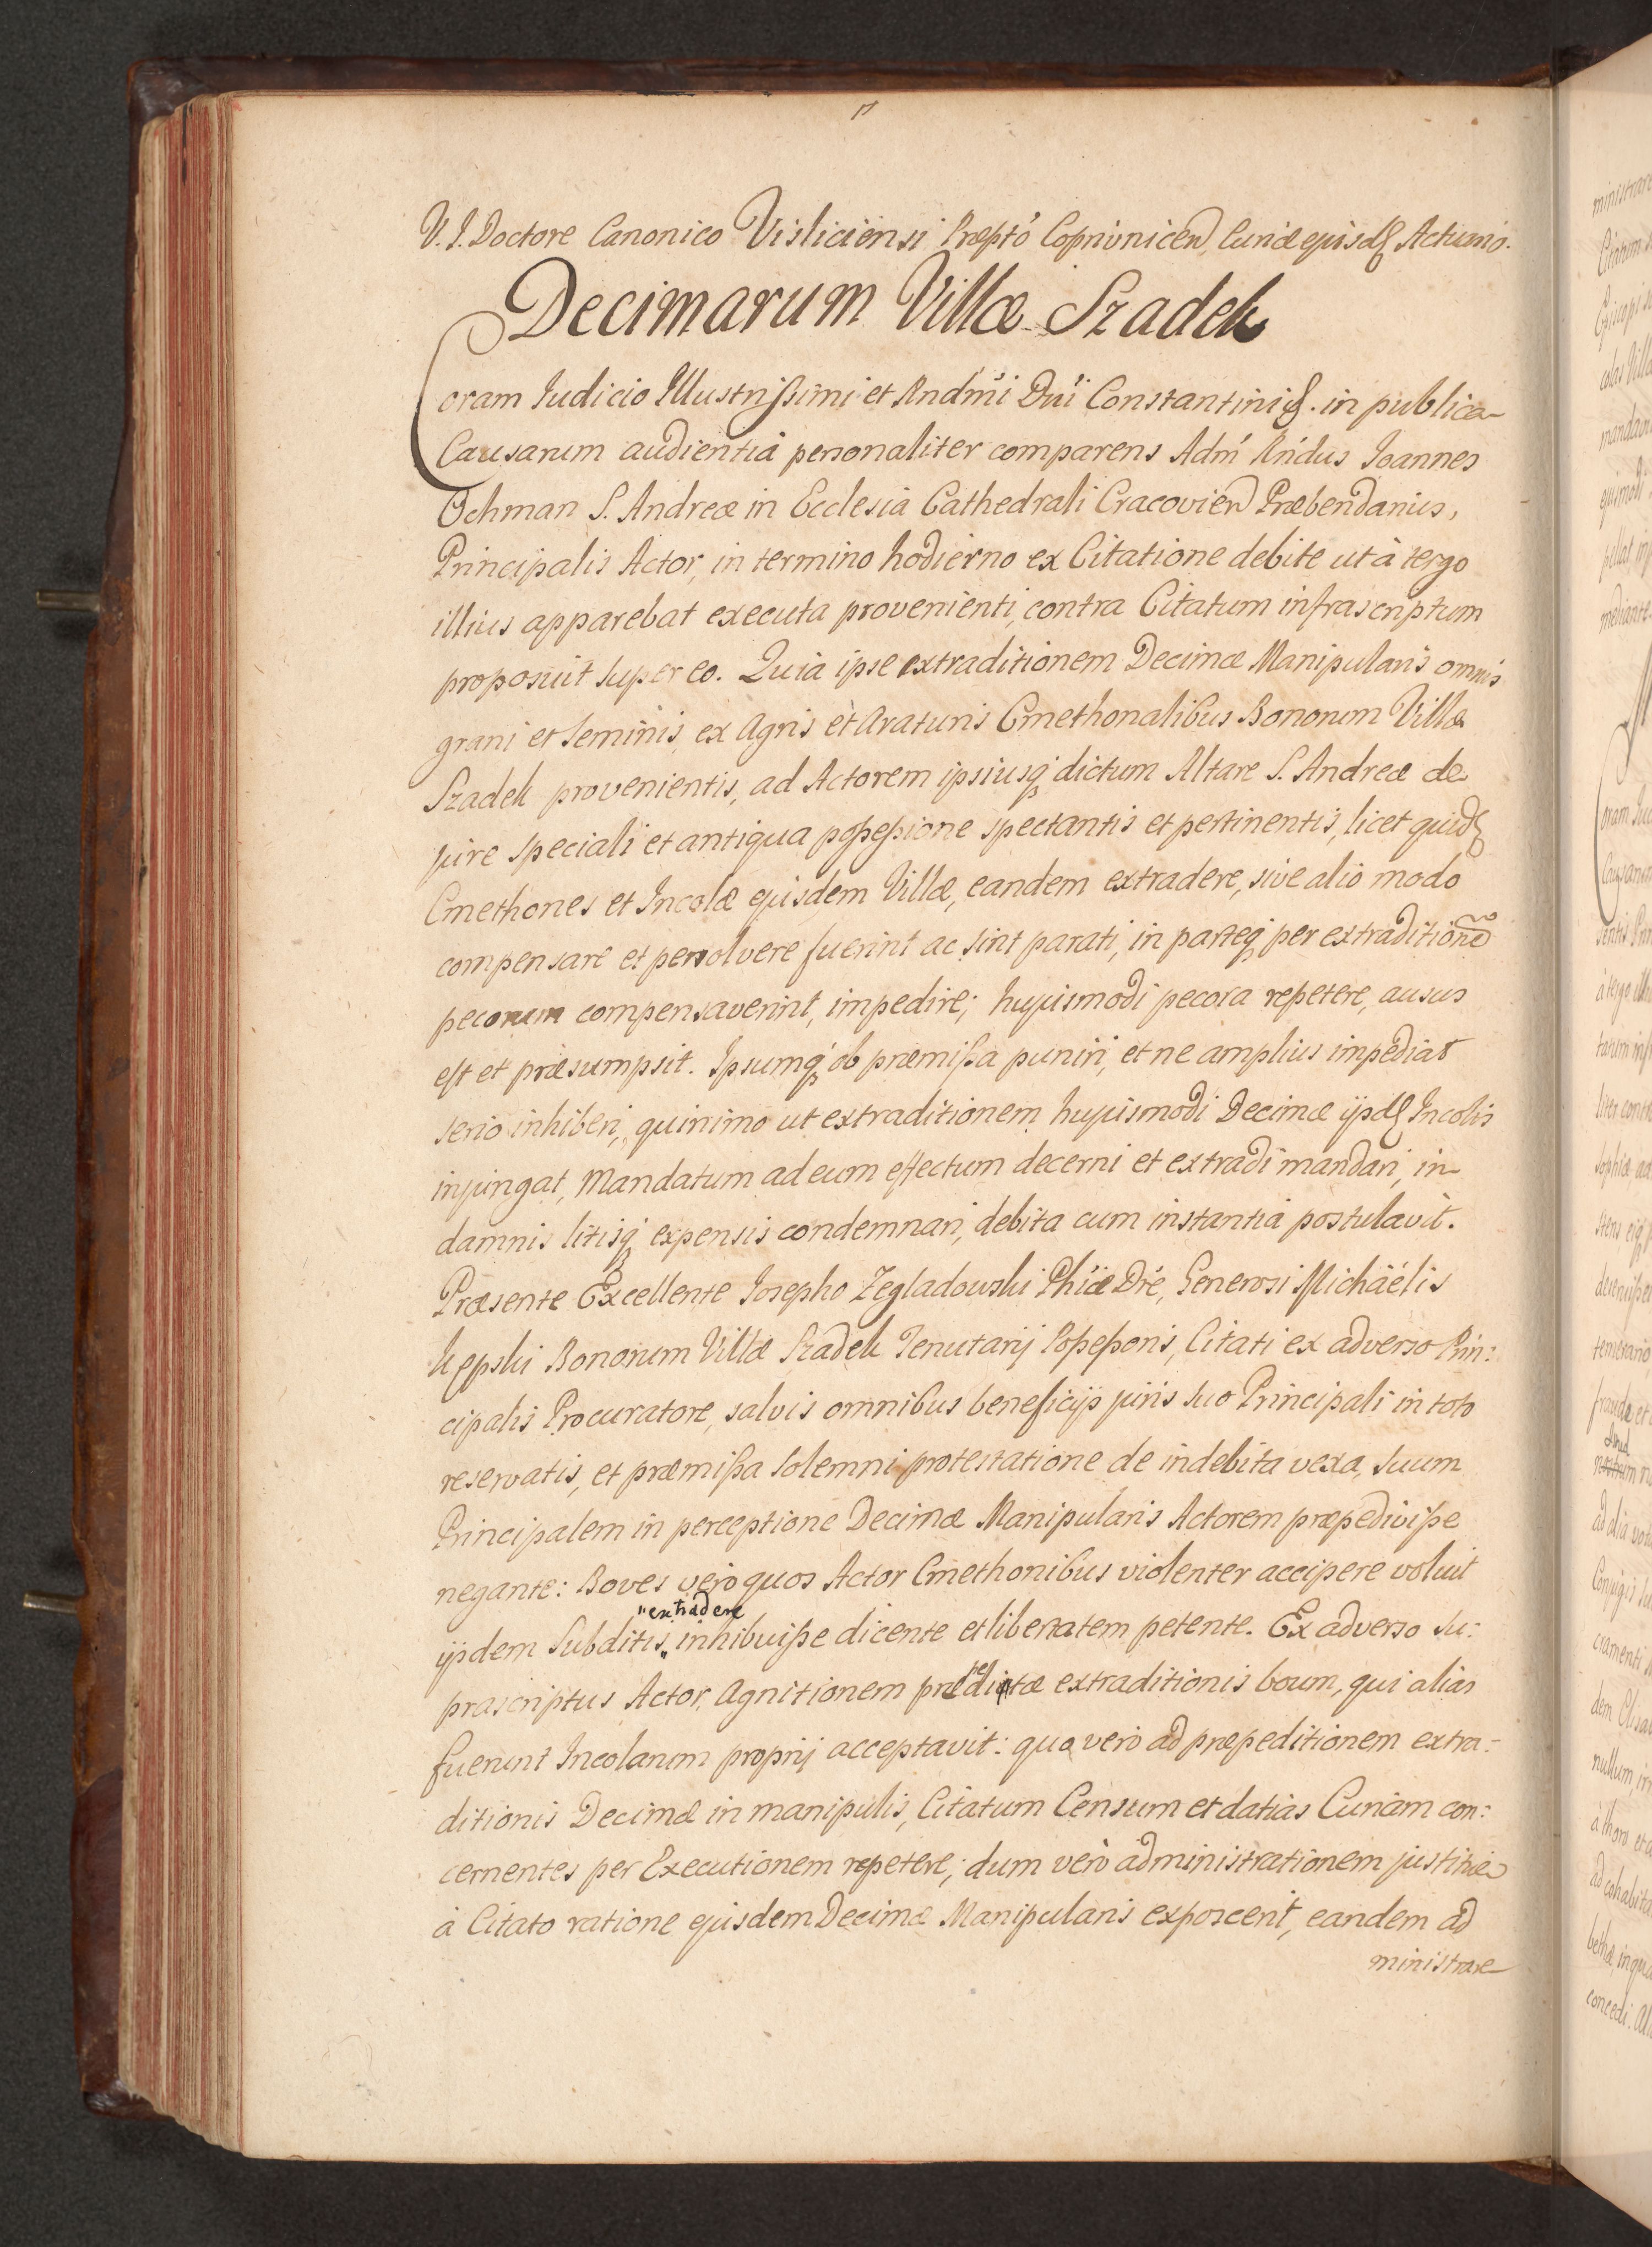 V. I. Doctore Canonico Visliciensi Præpto Coprivnicen Curiæ ejusd Actuario.
Decimarum Villæ Szadek
Coram Iudicio Illustrissimi et Rndmi Dni Constantini &. in publica
Causarum audientiâ personaliter comparens Adm Rndus Ioannes
Ochman S. Andreæ in Ecclesia Cathedrali Cracovien Præbendarius,
Principalis Actor, in termino hodierno ex Citatione debite ut à tergo
illius apparebat executa provenienti, contra Citatum infrascriptum
proposuit super eo. Quia ipse extraditionem Decimæ Manipularis omnis
grani et seminis, ex Agris et Araturis Cmethonalibus Bonorum Villæ
Szadek provenientis, ad Actorem ipsiusq dictum Altare S. Andreæ de
jure speciali et antiqua possessione spectantis et pertinentis, licet quid
Cmethones et Incolæ ejusdem Villæ, eandem extradere, sive alio modo
compensare et persolvere fuerint ac sint parati, in parteq per extradition
pecorum compensaverint, impedire; hujusmodi pecora repetere, ausus
est et præsumpsit. Ipsumq ob præmissa puniri, et ne amplius impediat
serio inhiberi, quinimo ut extraditionem hujusmodi Decimæ ijsd Incolis
injungat, Mandatum ad eum effectum decerni et extradi mandari, in
damnis litisq expensis condemnari, debita cum instantia postulavit.
Præsente Excellente Iosepho Zegladowski Phiæ Dre, Generosi Michaëlis
Kępski Bonorum Villæ Szadek Tenutarij Possessoris, Citati ex adverso Prin:
cipalis Procuratore, salvis omnibus beneficijs juris suo Principali in toto
reservatis, et præmissa solemni protestatione de indebita vexa, suum
Principalem in perceptione Decimæ Manipularis Actorem præpedivisse
negante: Boves vero quos Actor Cmethonibus violenter accipere voluit
"extradere
ijsdem Subditis " inhibuisse dicente et liberatem petente. Ex adverso su:
prascriptus Actor, Agnitionem prædictæ extraditionis boum, qui alias
fuerunt Incolarum proprij acceptavit: quo vero ad præpeditionem extra:
ditionis Decimæ in manipulis, Citatum Censum et datias Curiam con:
cernentes per Executionem repetere; dum vero administrationem justitiæ
à Citato ratione ejusdem Decimæ Manipularis exposcerit, eandem ad
ministrare